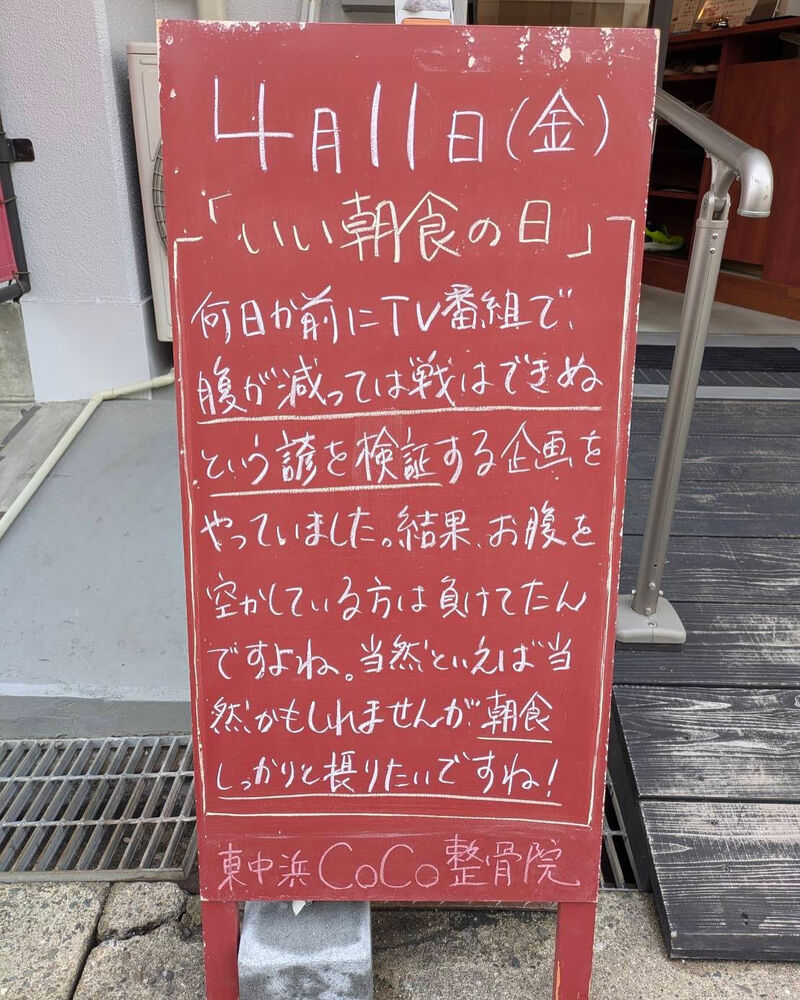 4月11日(金)
「いい朝食の日」
何日か前にTV番組で、
腹が減っては戦はできぬ
という諺を検証する企画を
やっていました。結果、お腹を
空かしている方は負けてたん
ですよね。当然といえば当
然かもしれませんが朝食
しっかりと摂りたいですね!
東中浜CoCo整骨院